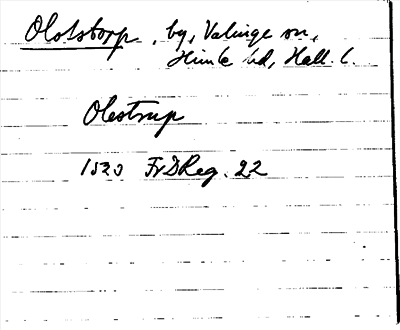 Olofstorp, by, Valinge sn,
Himle hd, Hall. l.
Olestrup
1523 FrDReg. 22